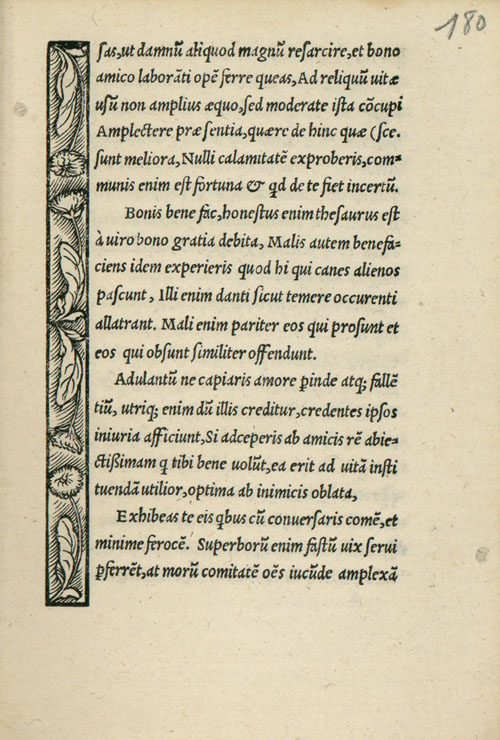 180
sas, ut damnū aliquod magnū resarcire, et bono
amico laborāti opē ferre queas, Ad reliquū uitæ
usū non amplius æquo, sed moderate ista cōcupi
Amplectere præsentia, quære de hinc quæ (sce.
sunt meliora, Nulli calamitatē exproberis, com-
munis enim est fortuna & qd de te fiet incertū.
Bonis bene fac, honestus enim thesaurus est
à uiro bono gratia debita, Malis autem benefa-
ciens idem experieris quod hi qui canes alienos
pascunt, Illi enim danti sicut temere occurenti
allatrant. Mali enim pariter eos qui prosunt et
eos qui obsunt similiter offendunt.
Adulantū ne capiaris amore ꝑinde atq; fallē
tiū, utriq; enim dū illis creditur, credentes ipsos
iniuria afficiunt, Si adceperis ab amicis rē abie-
ctißimam q tibi bene volūt, ea erit ad uitā insti
tuendā utilior, optima ab inimicis oblata,
Exhibeas te eis qbus cū conuersaris comē, et
minime ferocē. Superborū enim fastū uix serui
ꝑferrēt, at morū comitatē oēs iucūde amplexā